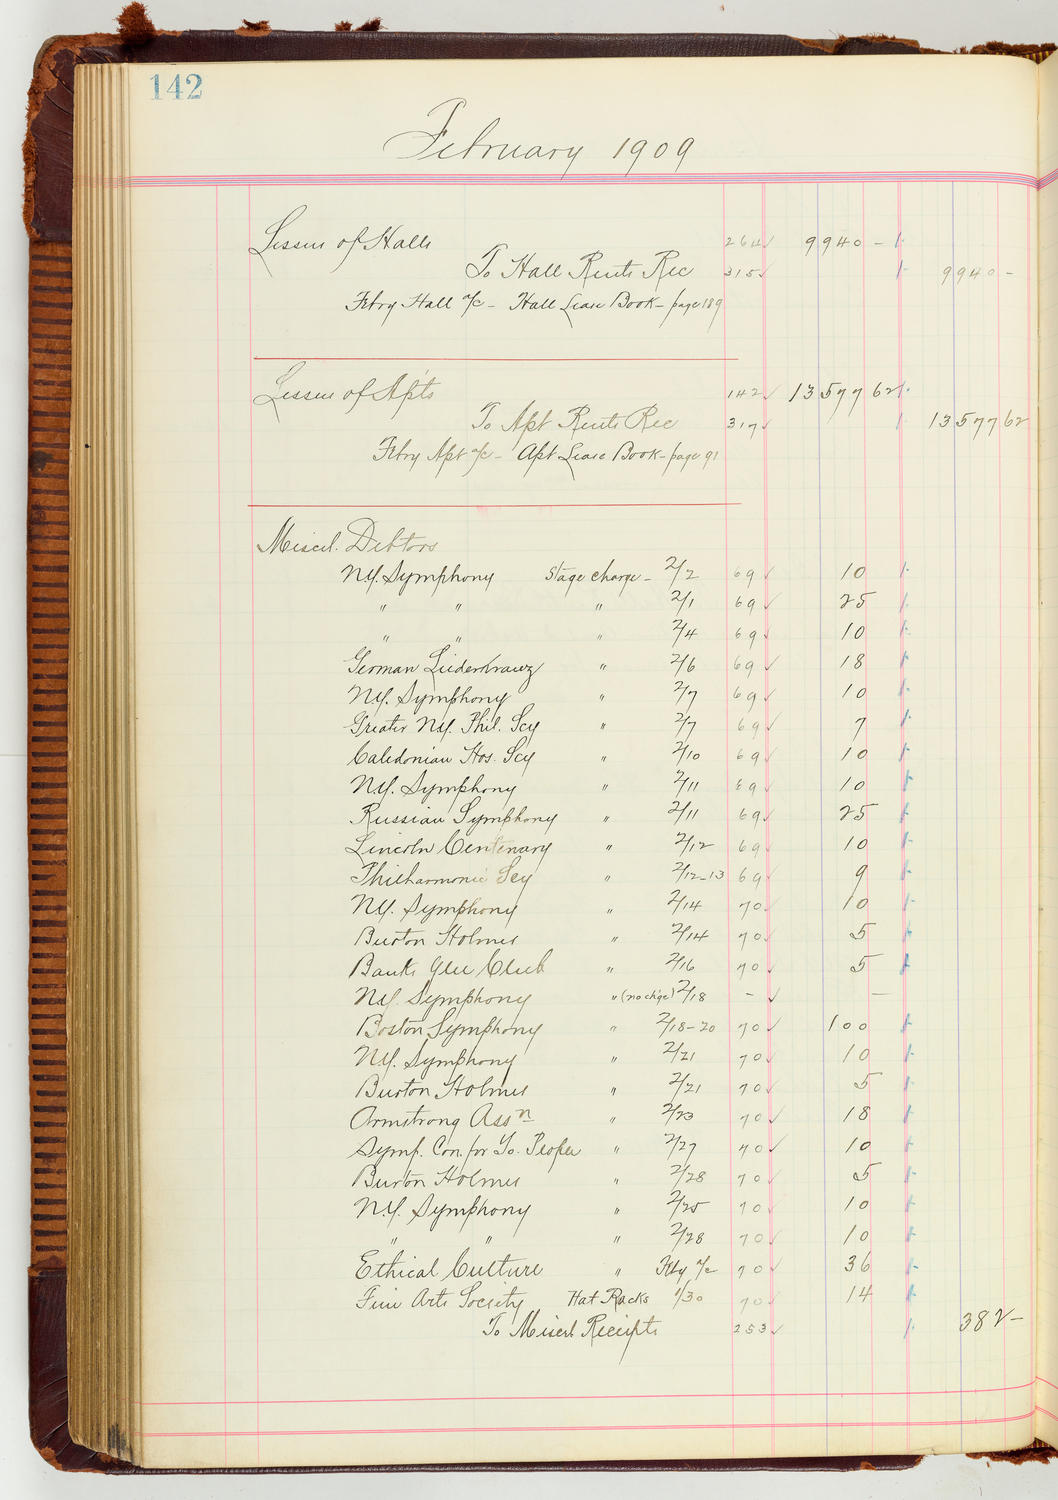 142
February 1909
Lessees of Halls 264 ✓ 9940 –
To Hall Rents Rec 315 ✓ 9940 –
Febry Hall a/c – Hall Lease Book – page 189
Lessees of Apts 142 ✓ 13577 62
To Apt Rents Rec 317 ✓ 13577 62
Febry Apt a/c – Apt Lease Book – page 91
Miscel. Debtors
N.Y. Symphony Stage charge – 2/2 69 ✓ 10
" " " 2/1 69 ✓ 25
" " " 2/4 69 ✓ 10
German Liederkranz " 2/6 69 ✓ 18
N.Y. Symphony " 2/7 69 ✓ 10
Greater N.Y. Phil. Scy " 2/7 69 ✓ 7
Caledonian Hos. Scy " 2/10 69 ✓ 10
N.Y. Symphony " 2/11 69 ✓ 10
Russian Symphony " 2/11 69 ✓ 25
Lincoln Centenary " 2/12 69 ✓ 10
Philharmonic Scy " 2/12-13 69 ✓ 9
N.Y. Symphony " 2/14 70 ✓ 10
Burton Holmes " 2/14 70 ✓ 5
Banks Glee Club " 2/16 70 ✓ 5
N.Y. Symphony " (no chge) 2/18 – ✓ —
Boston Symphony " 2/18-20 70 ✓ 100
N.Y. Symphony " 2/21 70 ✓ 10
Burton Holmes " 2/21 70 ✓ 5
Armstrong Assn " 2/23 70 ✓ 18
Symp. Con. for Yo. People " 2/27 70 ✓ 10
Burton Holmes " 2/28 70 ✓ 5
N.Y. Symphony " 2/25 70 ✓ 10
" " " 2/28 70 ✓ 10
Ethical Culture " Feby a/c 70 ✓ 36
Fine Arts Society Hat Racks 1/30 70 ✓ 14
To Miscel Receipts 253 ✓ 382 –